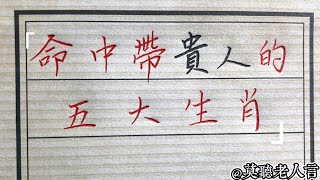 命中帶貴人的
五大生肖
@莫聽老人言